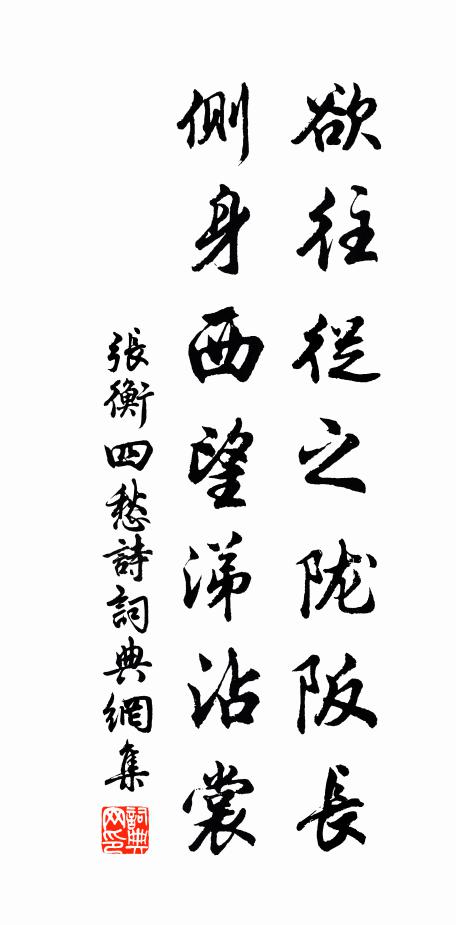 欲往從之陇阪長
側身西望涕沾裳
張衡四愁詩詞典網集
詞典網印